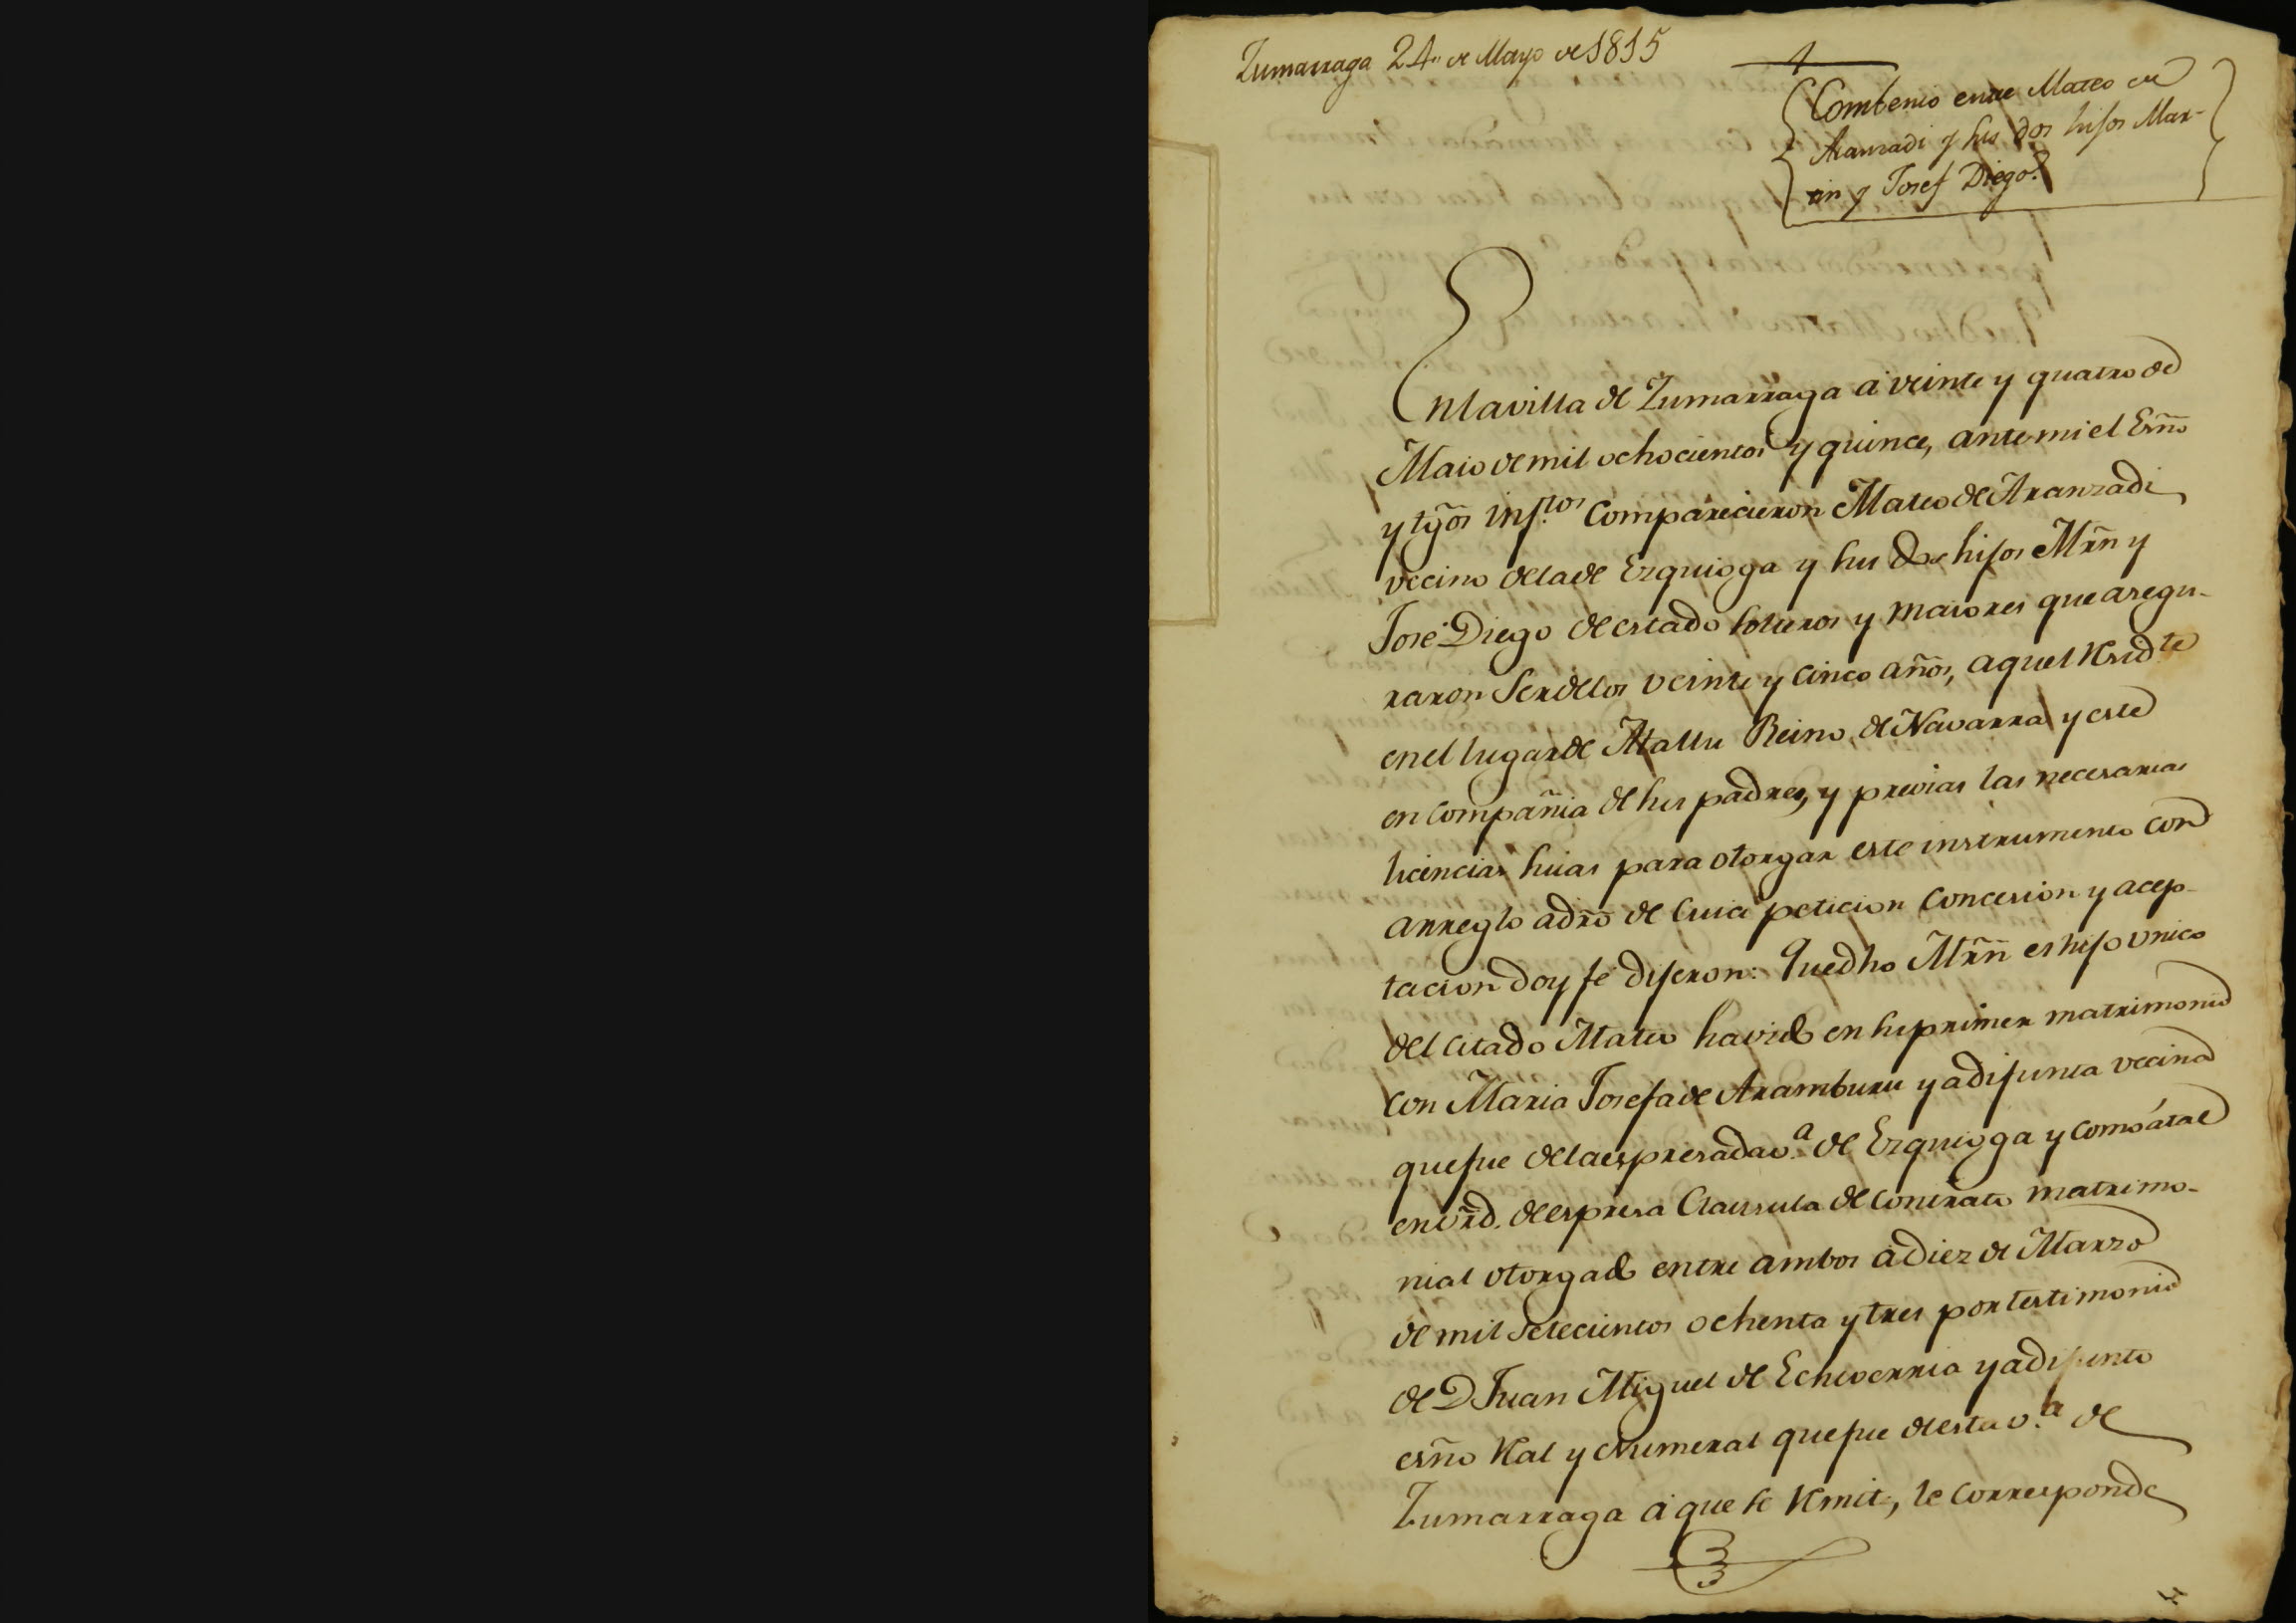 Zumarraga 24" de Mayo de 1815
Combenio entre Mateo de
Aranzadi y sus dos hijos Mar-
tin y Josef Diego.
En la villa de Zumarraga à veinte y quatro de
Maio de mil ochocientos y quince, ante mi el Esño
y tg̃os inf.tos comparecieron Mateo de Aranzadi
vecino de la de Ezquioga y sus dos hijos Mrñ y
José Diego de estado solteros y maiores que asegu-
raron ser de los veinte y cinco años, aquel resid.te
en el lugar de Atallu Reino de Navarra y este
en compañia de sus padres, y previas las necesarias
licencias suias para otorgar este instrumento con
arreglo a dr̃o de cuia peticion concesion y acep-
tacion doy fé dijeron: Que dho Mrñ es hijo unico
del citado Mateo havido en su primer matrimonio
con Maria Josefa de Aramburu ya difunta vecina
que fue de la espresada v.a de Ezquioga y como á tal
en vr̃d. de espresa Clausula de contrato matrimo-
nial otorgado entre ambos à diez de Marzo
de mil setecientos ochenta y tres por testimonio
de D Juan Miguel de Echeverria ya difunto
esño Real y Numeral que fue de esta v.a de
Zumarraga à que se remit, le corresponde